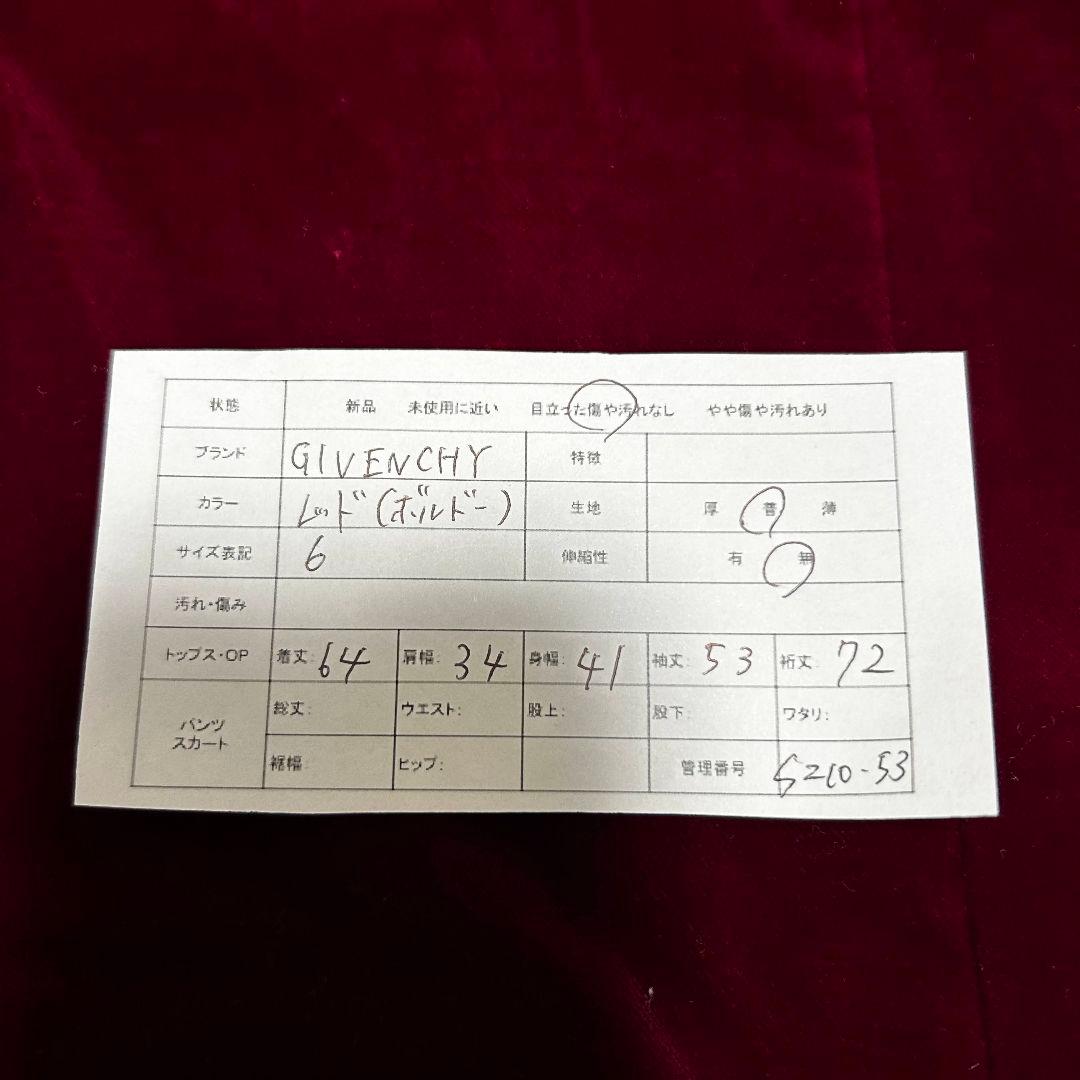 状態 新品 未使用に近い 目立った傷や汚れなし やや傷や汚れあり
ブランド GIVENCHY 特徴
カラー レッド(ボルドー) 生地 厚 普 薄
サイズ表記 6 伸縮性 有 無
汚れ・傷み
トップス・OP 着丈: 64 肩幅: 34 身幅: 41 袖丈: 53 裄丈: 72
パンツ スカート
総丈: ウエスト: 股上:股下: ワタリ:
裾幅: ヒップ: 管理番号 5210-53